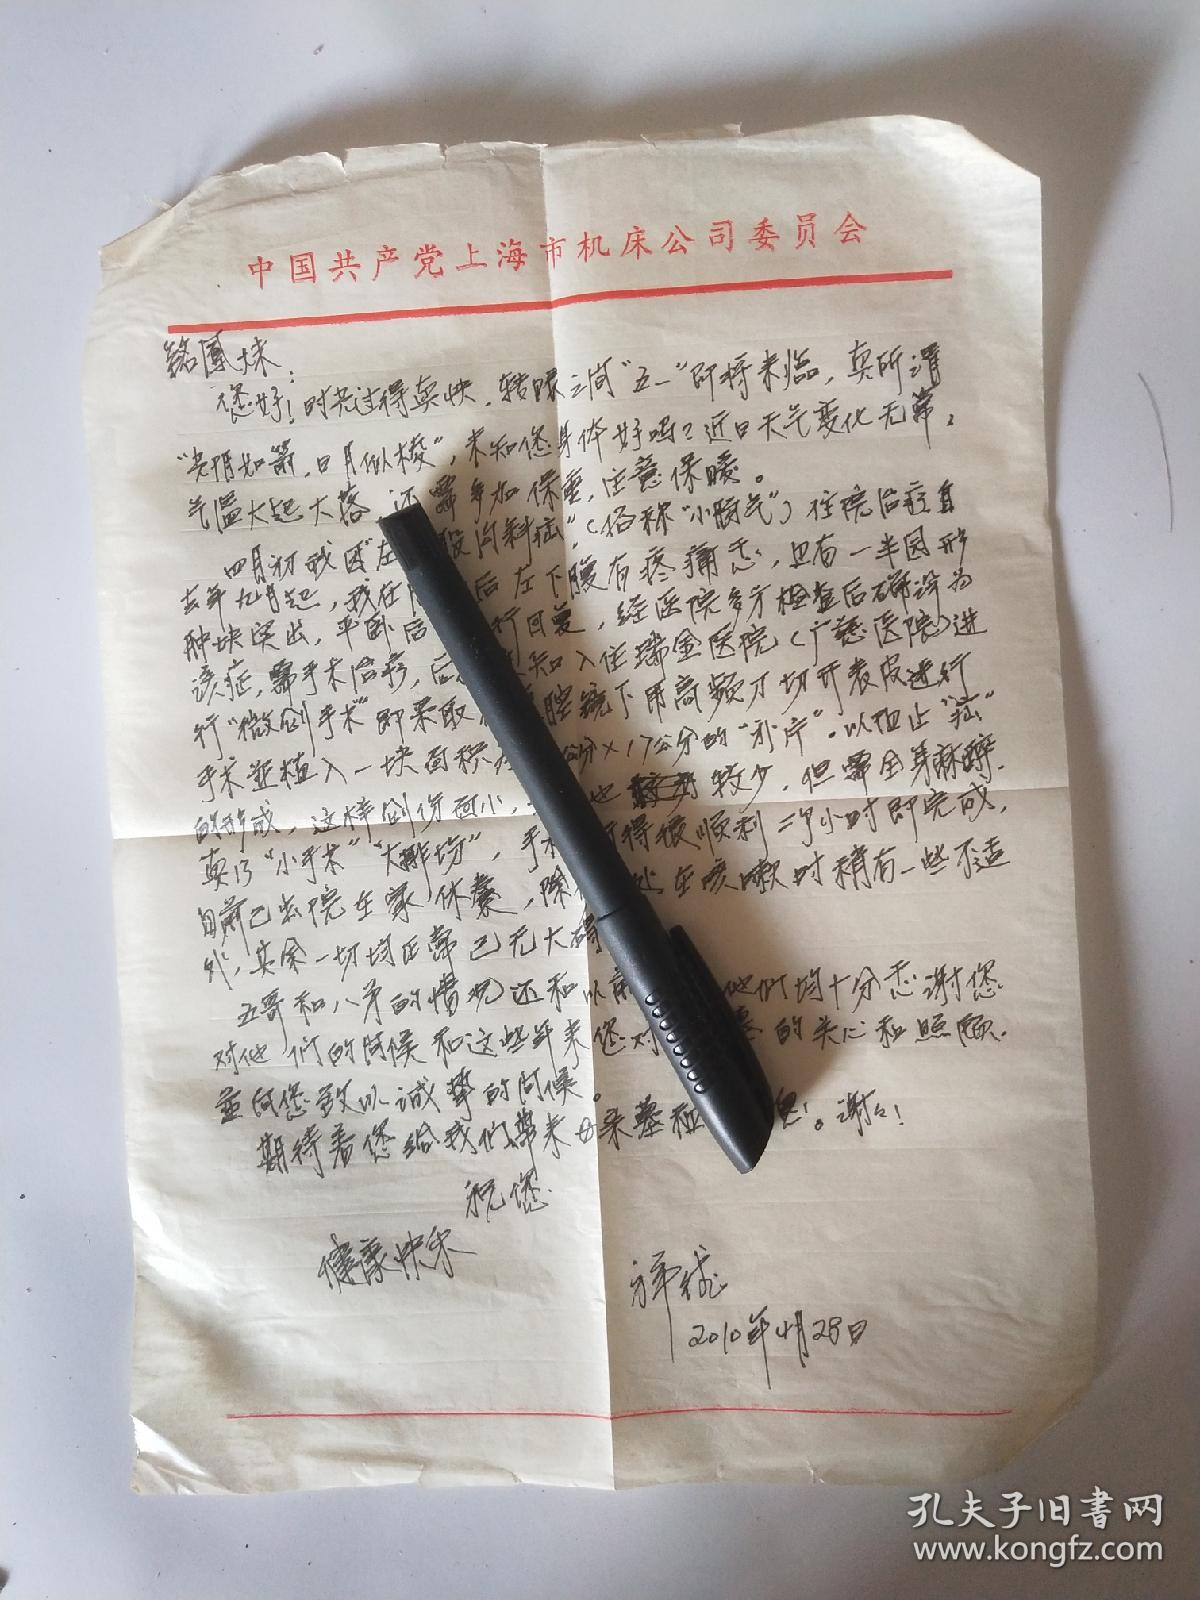 中国共产党上海市机床公司委员会
铭凤妹:
您好!时光过得真快,转眼之间"五一"即将来临,真所谓
"光阴如箭,日月似梭",未知您身体好吗?近日天气变化无常,
气温大起大落,还需多加保重,注意保暖。
四月初我因"左 股沟斜疝"(俗称"小肠气")住院治疗自
去年九月起,我在 后左下腹有疼痛感,且有一半园形
肿块突出,平卧后 行回复,经医院多方检查后确诊为
该症,需手术治疗,后 知入住瑞金医院(广慈医院)进
行"微创手术"即采取 腔镜下用高频刀切开表皮进行
手术並植入一块面积 公分×17公分的"补片"。以阻止"疝"
的形成,这样创伤面小, 也 较少,但需全身麻醉.
真乃"小手术""大排场",手 得很顺利二个小时即完成,
目前已出院在家休养,除 处在咳嗽时稍有一些不适
外,其余一切均正常已无大碍
五哥和八弟的情况还和以前 他们均十分感谢您
对他们的问候和这些年来您对 的关心和照顾.
並向您致以诚挚的问候。
期待着您给我们带来母亲墓 息!。谢谢!
祝您
健康快乐
2010年4月28日
孔夫子旧书网
www.kongfz.com